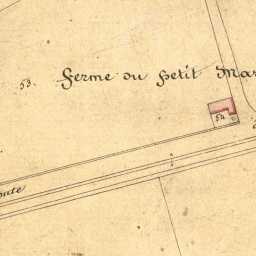 53. Ferme du Petit Mar
54
oute